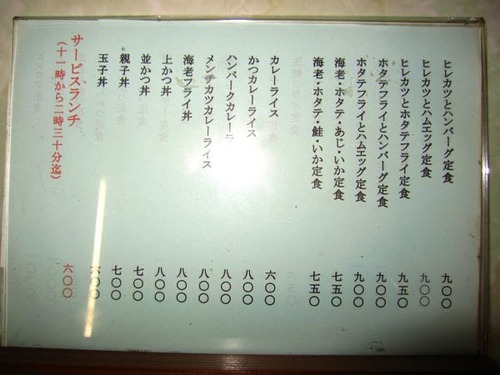 ヒレカツとハンバーグ定食 九〇〇
ヒレカツとハムエッグ定食 九〇〇
ヒレカツとホタテフライ定食 九五〇
ホタテフライとハンバーグ定食 九〇〇
ホタテフライとハムエッグ定食 九〇〇
海老・ホタテ・あじ・いか定食 七五〇
海老・ホタテ・鮭・いか定食 七五〇
カレーライス 六〇〇
かつカレーライス 八〇〇
ハンバークカレーラ 八〇〇
メンチカツカレーライス 八〇〇
海老フライ丼 八〇〇
上かつ丼 八〇〇
並かつ丼 七〇〇
親子丼 七〇〇
玉子丼 六〇〇
サービスランチ 六〇〇
(十一時から二時三十分迄)